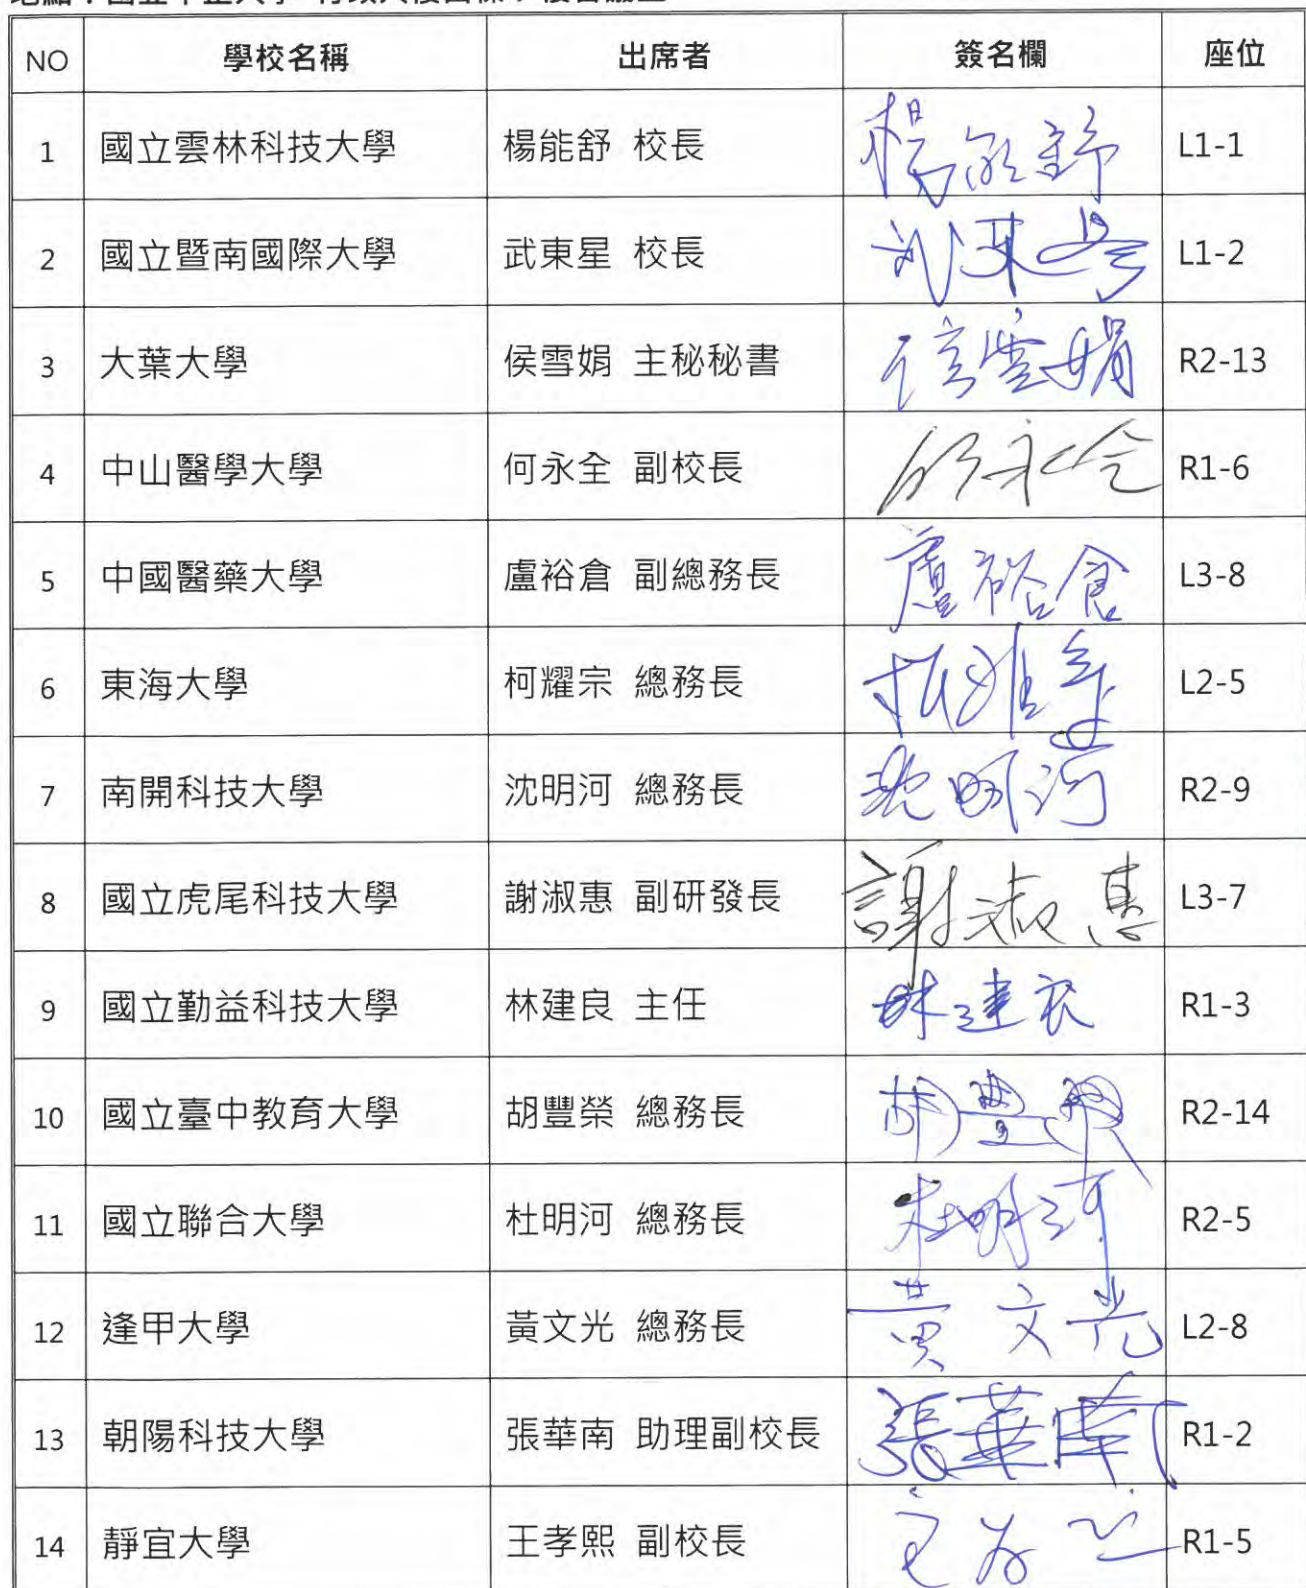 NO 學校名稱 出席者 簽名欄 座位
1 國立雲林科技大學 楊能舒 校長 楊能舒 L1-1
2 國立暨南國際大學 武東星 校長 L1-2
3 大葉大學 侯雪娟 主秘秘書 侯雪娟 R2-13
4 中山醫學大學 何永全 副校長 何永全 R1-6
5 中國醫藥大學 盧裕倉 副總務長 盧裕倉 L3-8
6 東海大學 柯耀宗 總務長 L2-5
7 南開科技大學 沈明河 總務長 沈明河 R2-9
8 國立虎尾科技大學 謝淑惠 副研發長 謝淑惠 L3-7
9 國立勤益科技大學 林建良 主任 林建良 R1-3
10 國立臺中教育大學 胡豐榮 總務長 胡豐榮 R2-14
11 國立聯合大學 杜明河 總務長 杜明河 R2-5
12 逢甲大學 黃文光 總務長 黃文光 L2-8
13 朝陽科技大學 張華南 助理副校長 張華南 R1-2
14 靜宜大學 王孝熙 副校長 R1-5